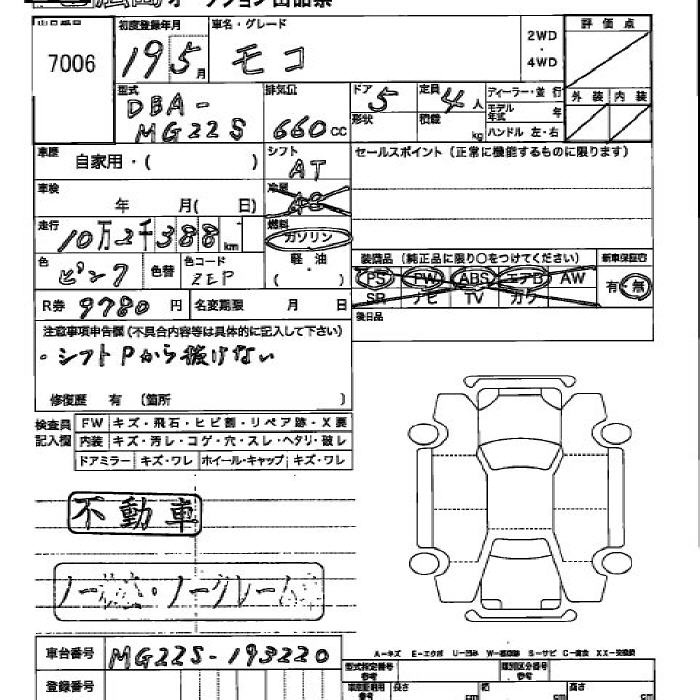 広島 オークション出品票
出品番号 7006
初度登録年月 19 5月
車名・グレード モコ
2WD・4WD
評価点
外装 内装
型式 DBA-MG22S
排気量 660cc
ドア 5
定員 4人
ディーラー・並行
モデル年式 年
形状
積載 kg
ハンドル 左・右
車歴 自家用・( )
シフト AT
セールスポイント(正常に機能するものに限ります)
車検 年 月( 日)
冷房
走行 10万2千388km
燃料 ガソリン
軽・油
( )
色 ピンク
色替
色コード ZEP
装備品(純正品に限り○をつけてください)
新車保証書
PS PW ABS エアB AW
有・無
SR ナビ TV カワ
R券 9780円
名変期限 月 日
後日品
注意事項申告欄(不具合内容等は具体的に記入して下さい)
・シフトPから抜けない
修復歴 有 〔箇所 〕
検査員記入欄
FW キズ・飛石・ヒビ割・リペア跡・X要
内装 キズ・汚レ・コゲ・穴・スレ・ヘタリ・破レ
ドアミラー キズ・ワレ ホイール・キャップ キズ・ワレ
不動車
ノー検査・ノークレーム
車台番号 MG22S-193220
A-キズ E-エクボ U-凹み W-補修跡 S-サビ C-腐食 XX-交換済
登録番号
型式指定番号 参考
類別区分番号 参考
長さ
幅
高さ